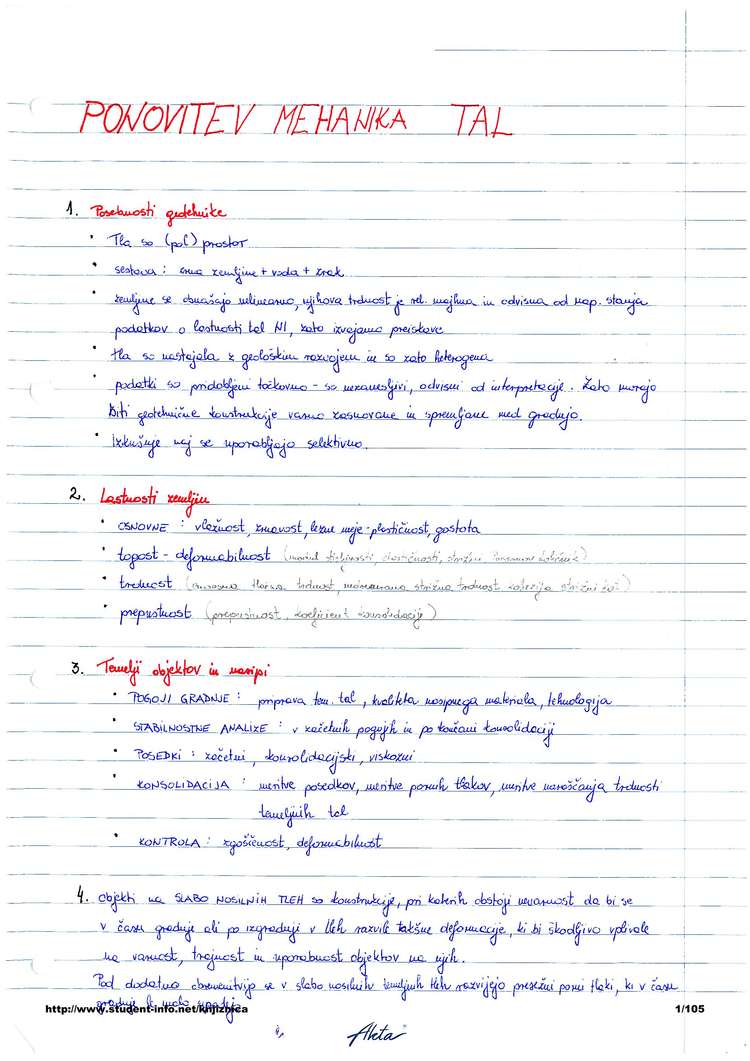 PONOVITEV MEHANIKA TAL
1. Posebnosti geotehnike
• Tla so (pol) prostor
• sestava : zrna zemljine + voda + zrak
• zemljine se obnašajo nelinearno, njihova trdnost je rel. majhna in odvisna od nap. stanja
podatkov o lastnosti tal NI, zato izvajamo preiskave
• tla so nastajala z geološkim razvojem in so zato heterogena
• podatki so pridobljeni točkovno - so nezanesljivi, odvisni od interpretacije. Zato morajo
biti geotehnične konstrukcije varno zasnovane in spremljane med gradnjo.
• Izkušnje naj se uporabljajo selektivno.
2. Lastnosti zemljin
• OSNOVNE : vlažnost, zrnavost, lezne meje - plastičnost, gostota
• togost - deformabilnost (modul stisljivosti, elastičnosti, strižni
• trdnost (enoosna tlačna trdnost, nedrenirana strižna trdnost, kohezija, strižni kot)
• prepustnost (prepustnost, koeficient konsolidacije)
3. Temelji objektov in nasipi
• POGOJI GRADNJE : priprava tem. tal, kvaliteta nasipnega materiala, tehnologija
• STABILNOSTNE ANALIZE : v začetnih pogojih in po končani konsolidaciji
• POSEDKI : začetni, konsolidacijski, viskozni
• KONSOLIDACIJA : meritve posedkov, meritve pornih tlakov, meritve naraščanja trdnosti
temeljnih tal
• KONTROLA : zgoščenost, deformabilnost
4. Objekti na SLABO NOSILNIH TLEH so konstrukcije, pri katerih obstaji nevarnost da bi se
v času gradnje ali po izgradnji v tleh razvile takšne deformacije, ki bi škodljivo vplivale
na varnost, trajnost in uporabnost objektov na njih.
Pod dodatno obremenitvijo se v slabo nosilnih temeljnih tleh razvijejo presežni porni tlaki, ki v času
gradnje le malo upadejo
http://www.student-info.net/knjiznica
1/105